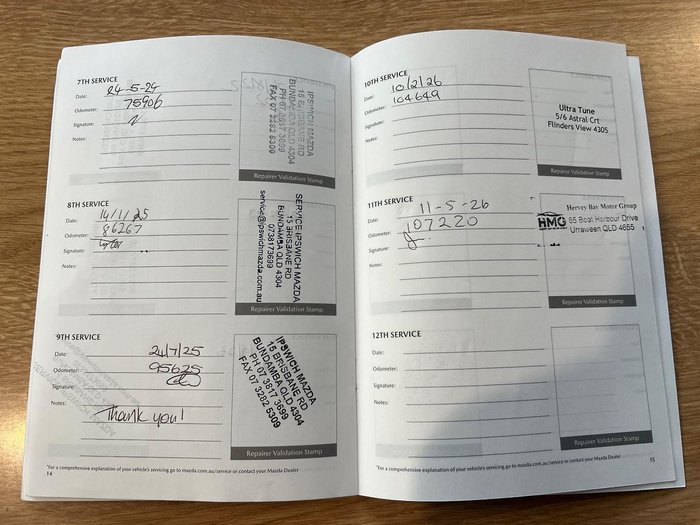 7TH SERVICE
Date: 24-5-24
Odometer: 75906
Signature:
Notes:
IPSWICH MAZDA
15 BRISBANE RD
BUNDAMBA QLD 4304
PH 07 3817 3699
FAX 07 3282 5309
Repairer Validation Stamp
8TH SERVICE
Date: 14/1/25
Odometer: 86267
Signature:
Notes:
SERVICE IPSWICH MAZDA
15 BRISBANE RD
BUNDAMBA QLD 4304
0738173699
service@ipswichmazda.com.au
Repairer Validation Stamp
9TH SERVICE
Date: 24/7/25
Odometer: 95625
Signature:
Notes:
Thank you!
IPSWICH MAZDA
15 BRISBANE RD
BUNDAMBA QLD 4304
PH 07 3817 3699
FAX 07 3282 5309
Repairer Validation Stamp
*For a comprehensive explanation of your vehicle's servicing go to mazda.com.au/service or contact your Mazda Dealer
14
10TH SERVICE
Date: 10/2/26
Odometer: 104649
Signature:
Notes:
Ultra Tune
5/6 Astral Crt
Flinders View 4305
Repairer Validation Stamp
11TH SERVICE
Date: 11-5-26
Odometer: 107220
Signature:
Notes:
HMG
Hervey Bay Motor Group
85 Boat Harbour Drive
Urraween QLD 4655
Repairer Validation Stamp
12TH SERVICE
Date:
Odometer:
Signature:
Notes:
Repairer Validation Stamp
*For a comprehensive explanation of your vehicle's servicing go to mazda.com.au/service or contact your Mazda Dealer
15